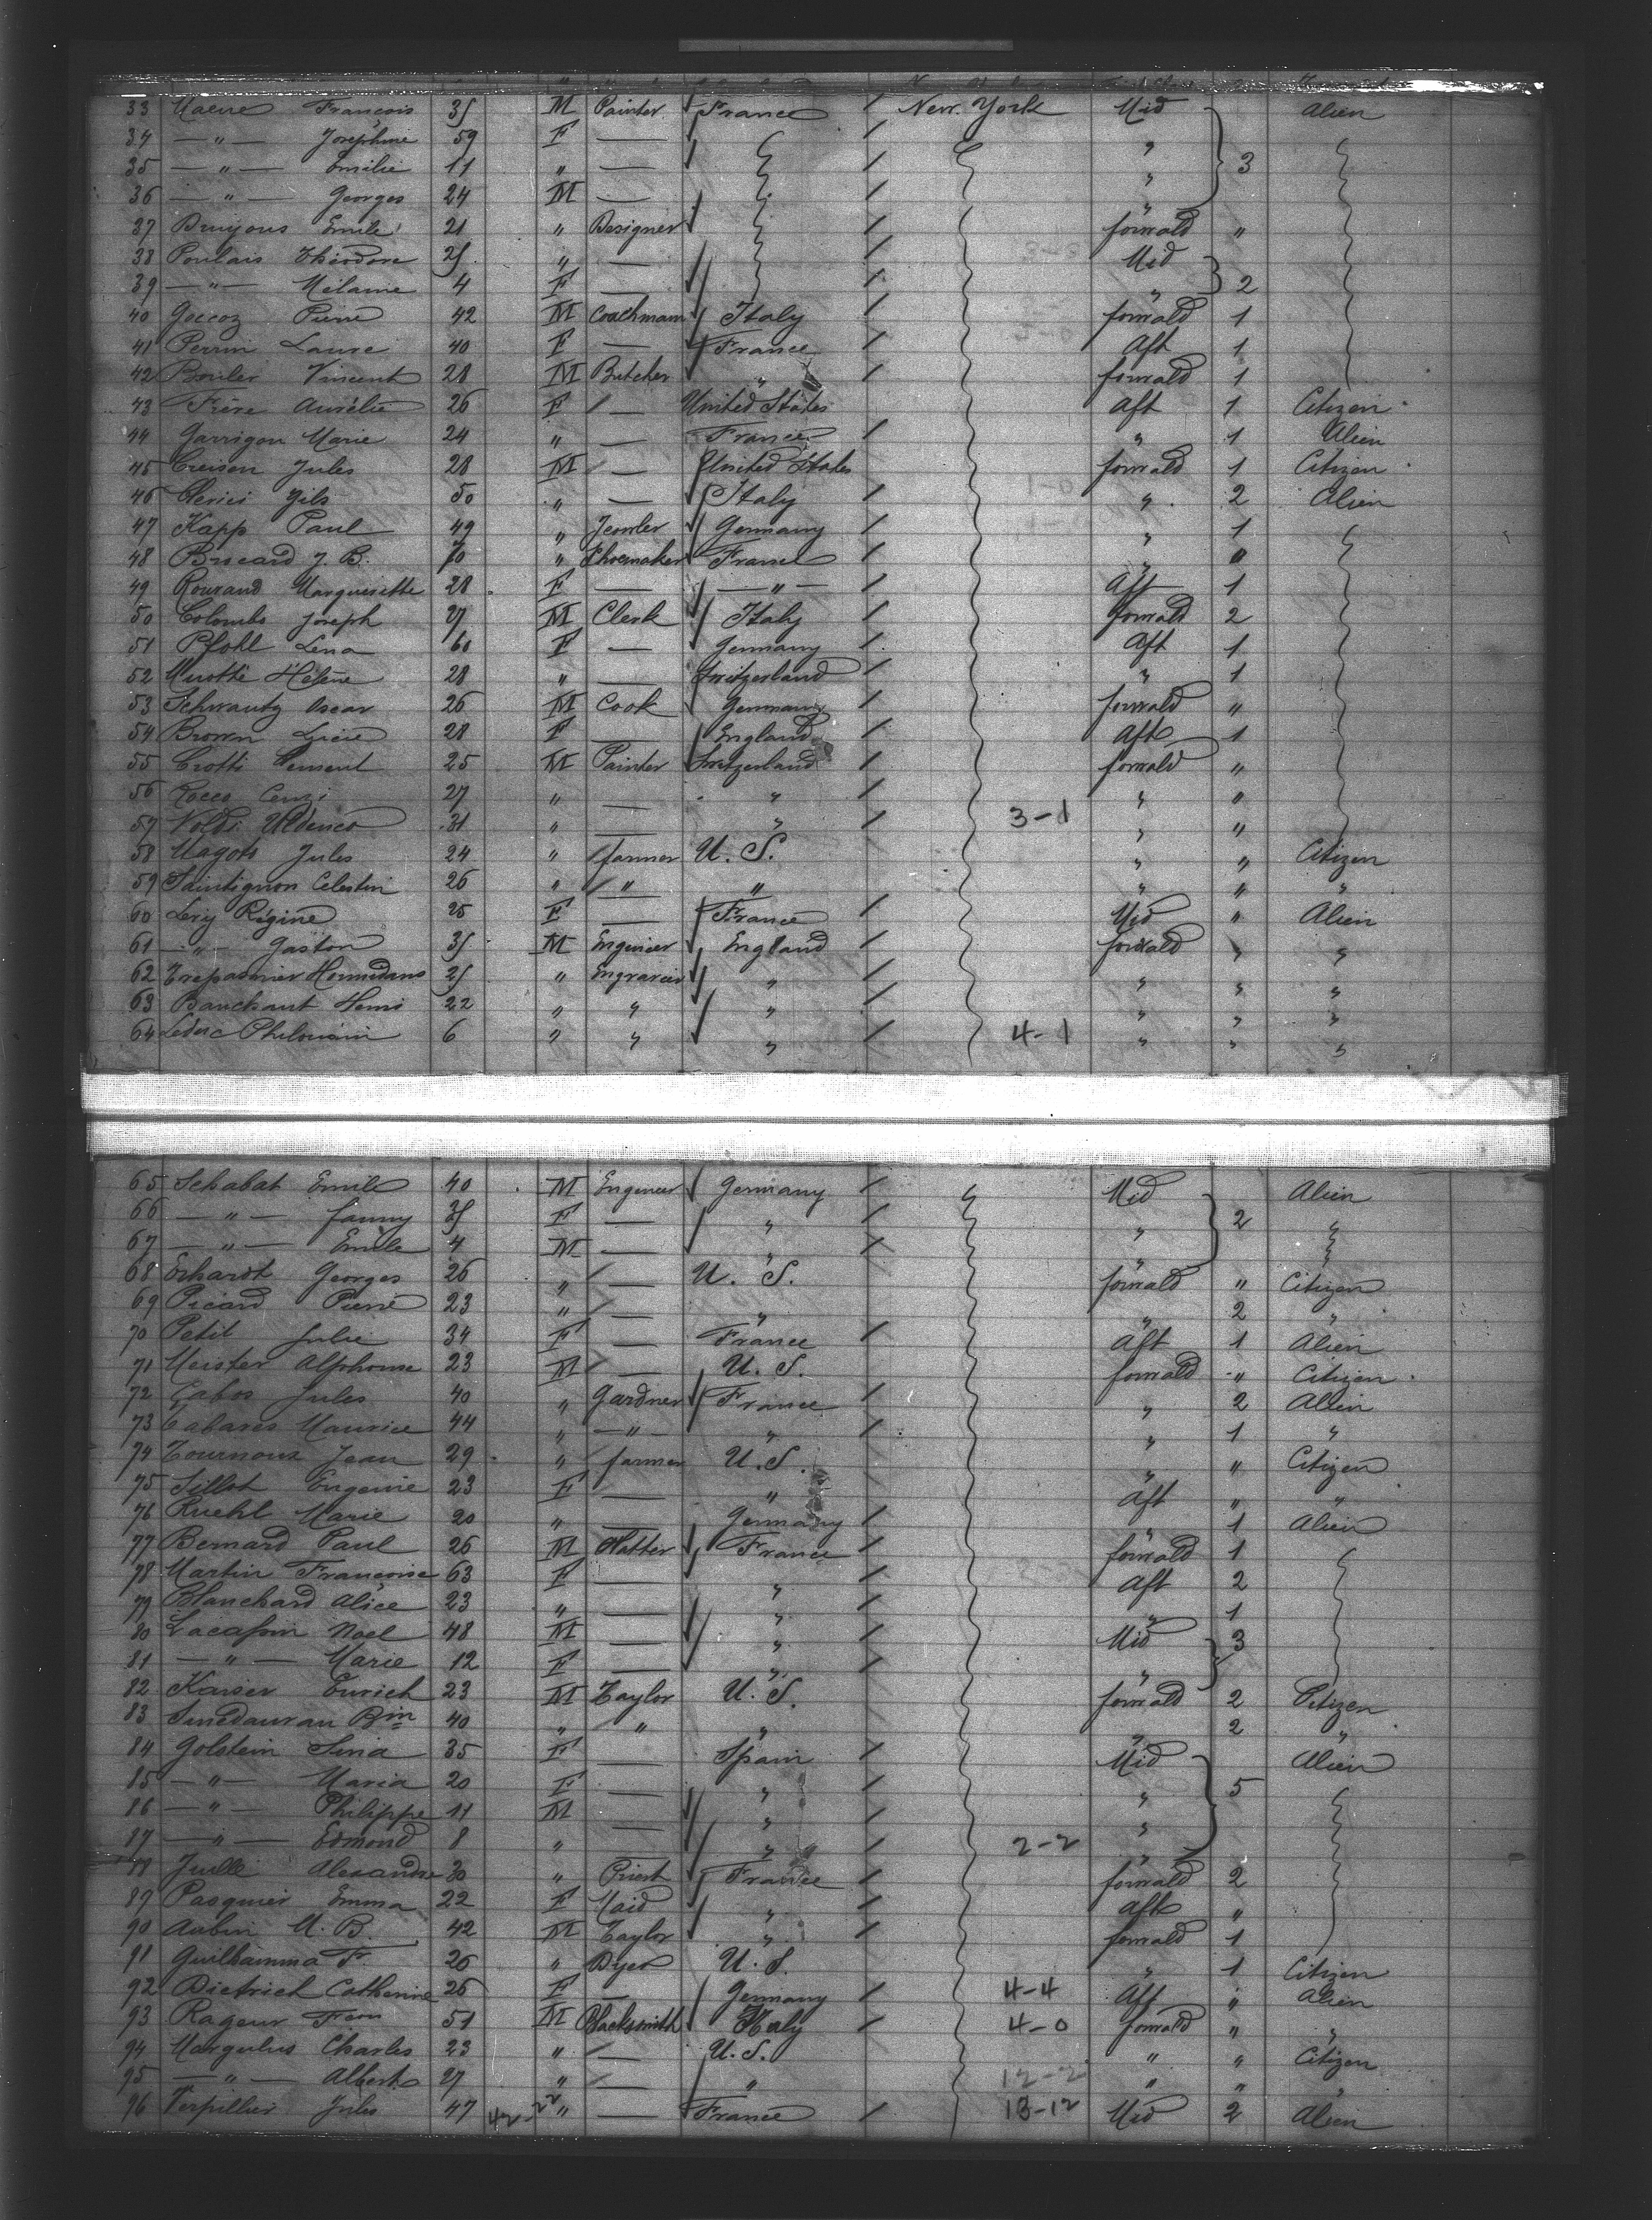 33 François M Painter France New York Mid Alien
34 — " — Joséphine 59 F — "
35 — " — Emilie 11 " — " 3
36 — " — Georges 24 M — "
37 Emile 21 " Designer forwald "
38 Poulais Théodore " — Mid
39 — " — Mélanie 4 F — " 2
40 Pierre 42 M Coachman Italy forwald 1
41 Perrin Laure 40 F — France Aft 1
42 Vincent 28 M Butcher " forwald 1
43 Frère Aurélie 26 F — United States Aft 1 Citizen
44 Garrigou Marie 24 " — France " 1 Alien
45 Creisen Jules 28 M — United States forwald 1 Citizen
46 Clerici 50 " — Italy " 2 Alien
47 Kapp Paul 49 " Jeowler Germany " 1
48 Brocard J. B. 70 " Shoemaker France " "
49 Rouraud Marguerite 28 F — — " — Aft 1
50 Colombo Joseph 27 M Clerk Italy forwald 2
51 Pfohl Lena 60 F — Germany Aft 1
52 Hélène 28 " — Switzerland " 1
53 Schwantz Oscar 26 M Cook Germany forwald "
54 Brown 28 F — England Aft 1
55 Crotti Clement 25 M Painter Switzerland forwald "
56 Rocco 27 " — " " "
57 Voldi 31 " — " 3-1 " "
58 Magots Jules 24 " farmer U. S. " " Citizen
59 Saintignon Celestin 26 " " " " " "
60 Levy Régine 25 F — France Mid " Alien
61 — " — Gaston M Engineer England forwald " "
62 " Engraver " " " "
63 Banchaut Henri 22 " " " " " "
64 Leduc 6 " " " 4-1 " " "
65 Schabat Emile 40 M Engineer Germany Mid Alien
66 — " — fanny F — " " 2 "
67 — " — Emile 4 M — " "
68 Erhardt Georges 26 " — U. S. forwald " Citizen
69 Picard Pierre 23 " — " " 2 "
70 Petit Julie 34 F — France Aft 1 Alien
71 Meister Alphonse 23 M — U. S. forwald " Citizen
72 Jules 40 " Gardner France " 2 Alien
73 Cabarès Maurice 44 " — " — " " 1 "
74 Tournoux Jean 29 " farmer U. S. " " Citizen
75 Sillot Eugenie 23 F — " Aft " "
76 Ruehl Marie 20 " — Germany " 1 Alien
77 Bernard Paul 26 M Hatter France forwald 1
78 Martin Françoise 63 F — " Aft 2
79 Blanchard Alice 23 " — " " 1
80 Lacassin Noel 48 M — " Mid 3
81 — " — Marie 12 F — " "
82 Kaiser Enrich 23 M Taylor U. S. forwald 2 Citizen
83 Bin 40 " " " " 2 "
84 Golstein 35 F — Spain Mid Alien
85 — " — Maria 20 F — " " 5
86 — " — Philippe 11 M — " "
87 — " — Edmond 8 " — " 2-2 "
88 Juillé Alexandre 30 " Priest France forwald 2
89 Pasquier Emma 22 F Maid " Aft "
90 Aubin M. B. 42 M Taylor " forwald 1
91 F. 26 " Dyer U. S. " 1 Citizen
92 Dietrich Catherine 26 F — Germany 4-4 Aft " Alien
93 Rageur 51 M Blacksmith Italy 4-0 forwald " "
94 Margulus Charles 23 " — U. S. " " Citizen
95 — " — Albert 27 " — " 12-2 " " "
96 Verpillier Jules 47 " — France 13-12 Mid 2 Alien